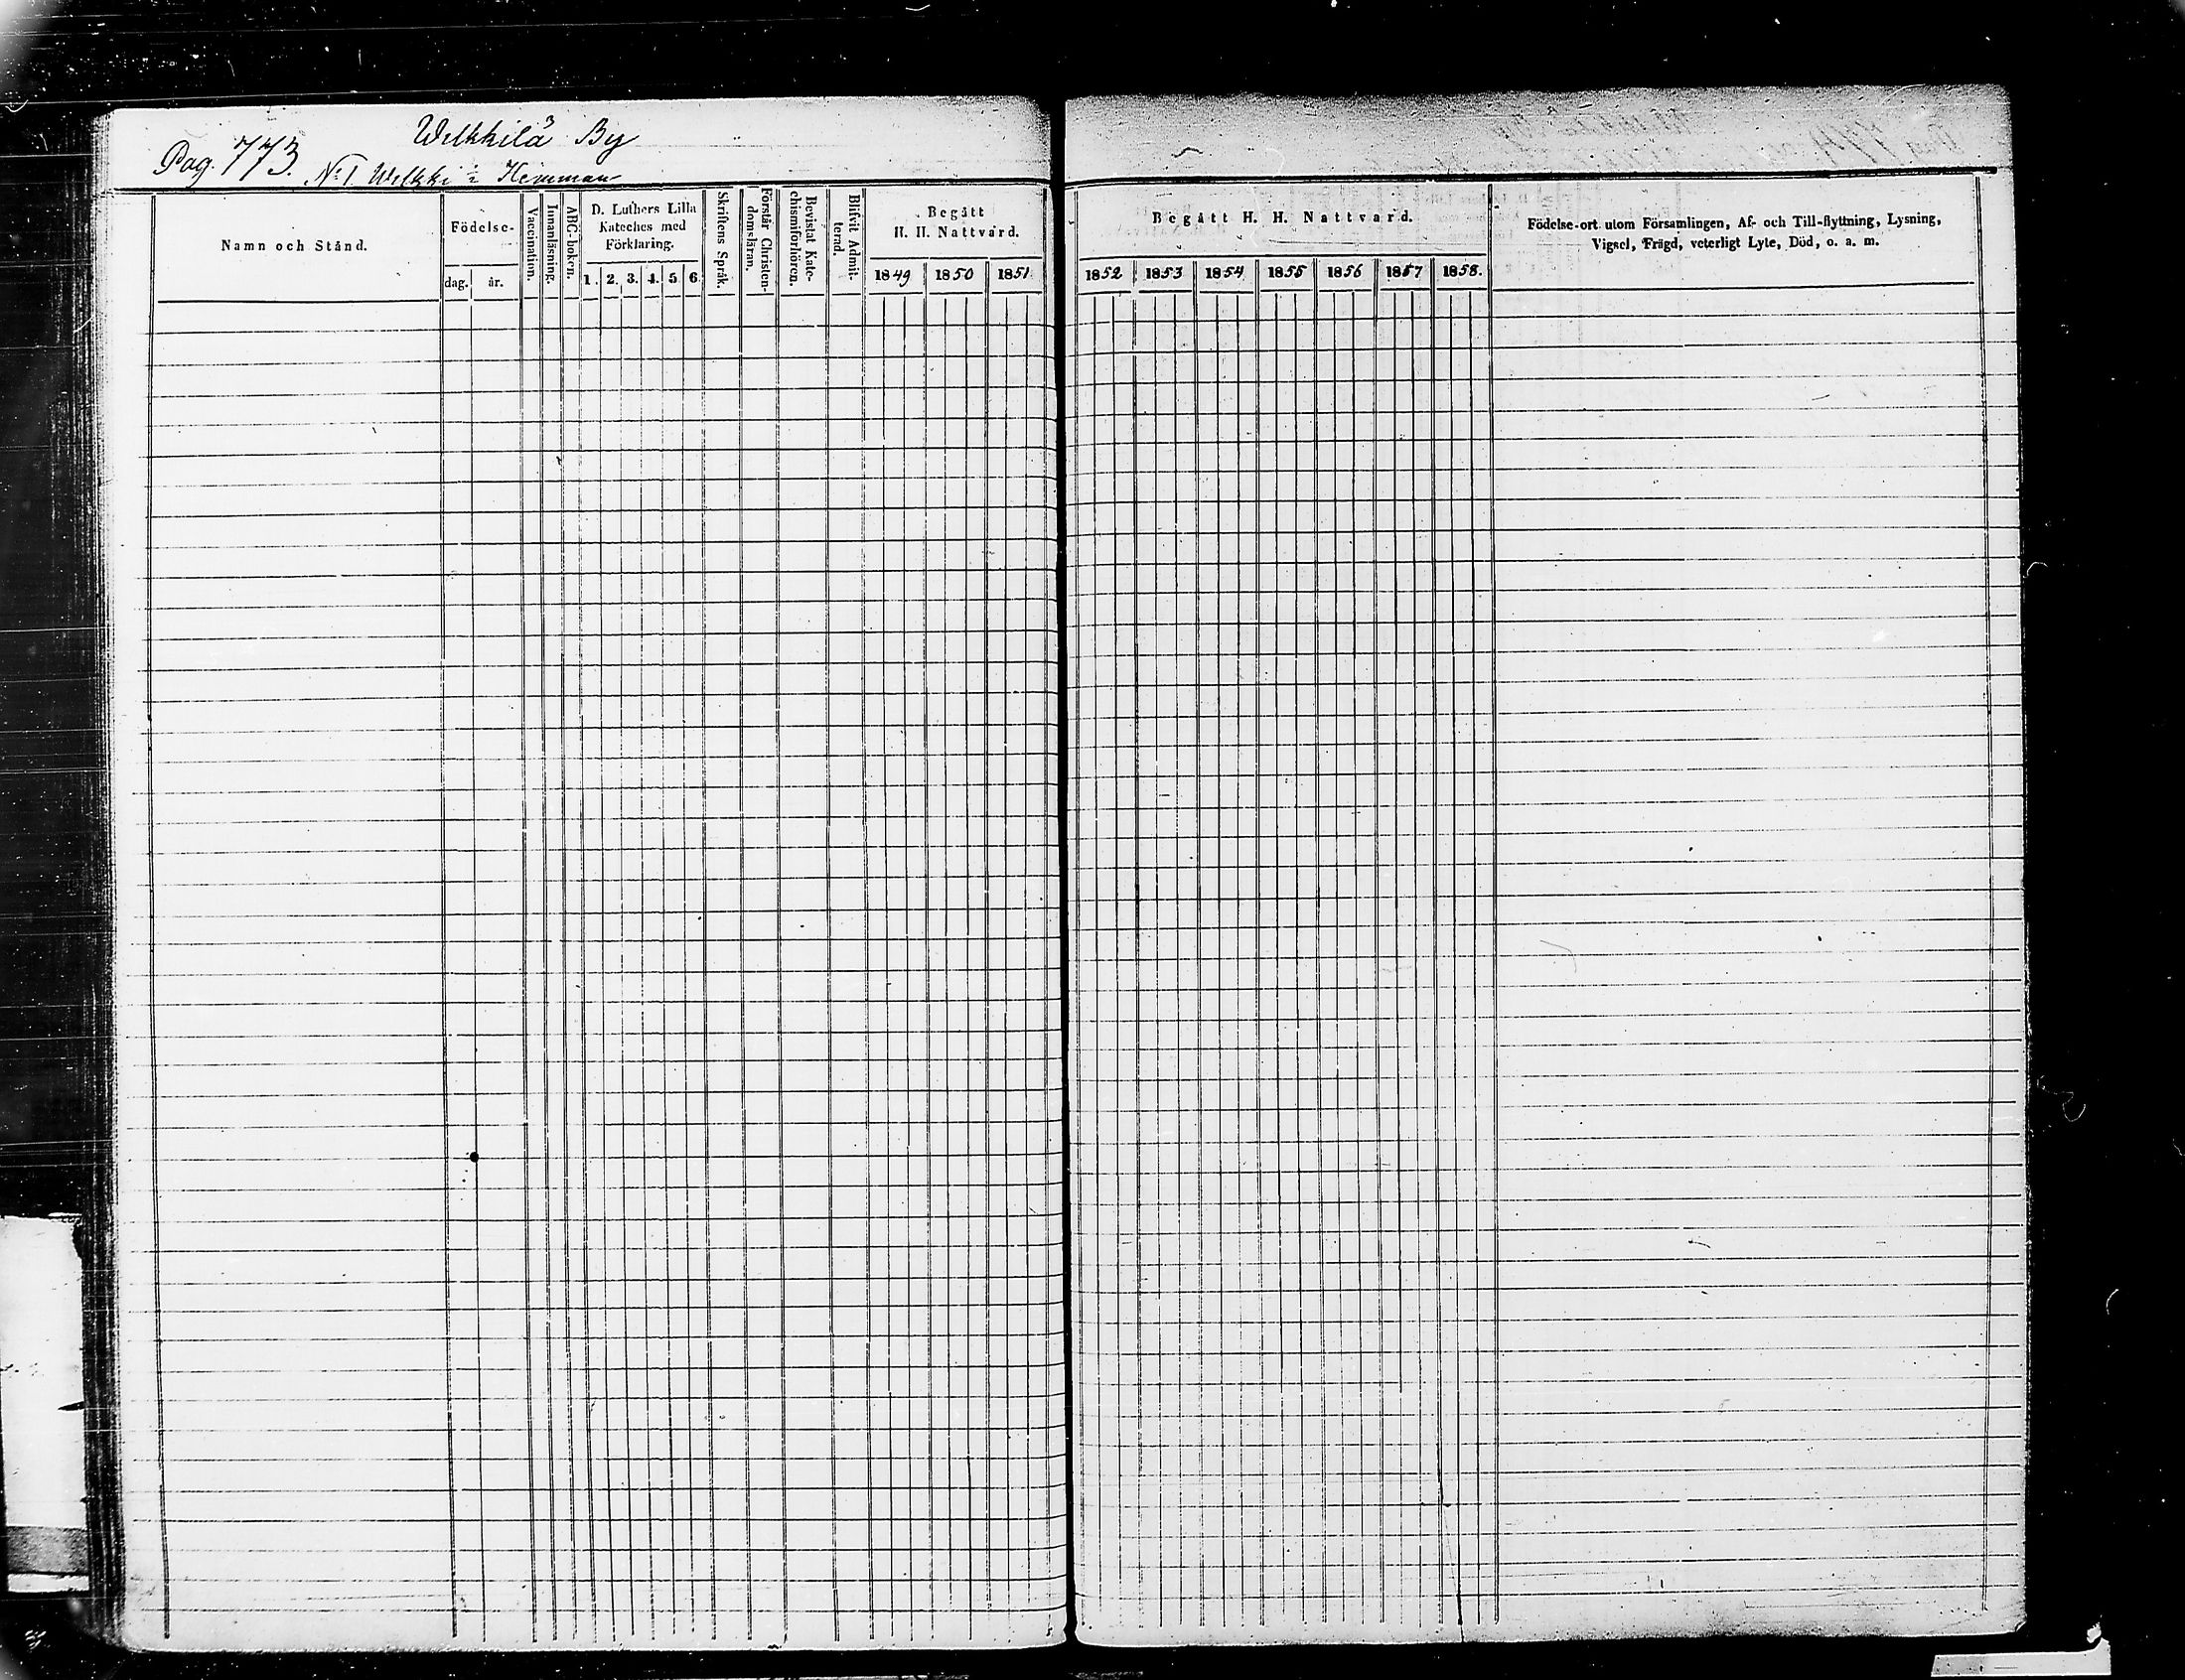 Welkkilä By
Pag. 773.
No 1 Welkki ½ Hemman
Namn och Stånd.
Födelse-
dag. år.
Vaccination.
Innanläsning.
ABC-boken.
D. Luthers Lilla
Kateches med
Förklaring.
1. 2. 3. 4. 5 6
Skriftens Språk.
Förstår Christen-
domsläran.
Bevistat Kate-
chismiförhören.
Blifvit Admit-
terad.
Begått
H. H. Nattvard.
1849 1850 1851
Begått H. H. Nattvard.
1852 1853 1854 1855 1856 1857 1858.
Födelse-ort utom Församlingen, Af- och Till-flyttning, Lysning,
Vigsel, Frägd, veterligt Lyte, Död, o. a. m.